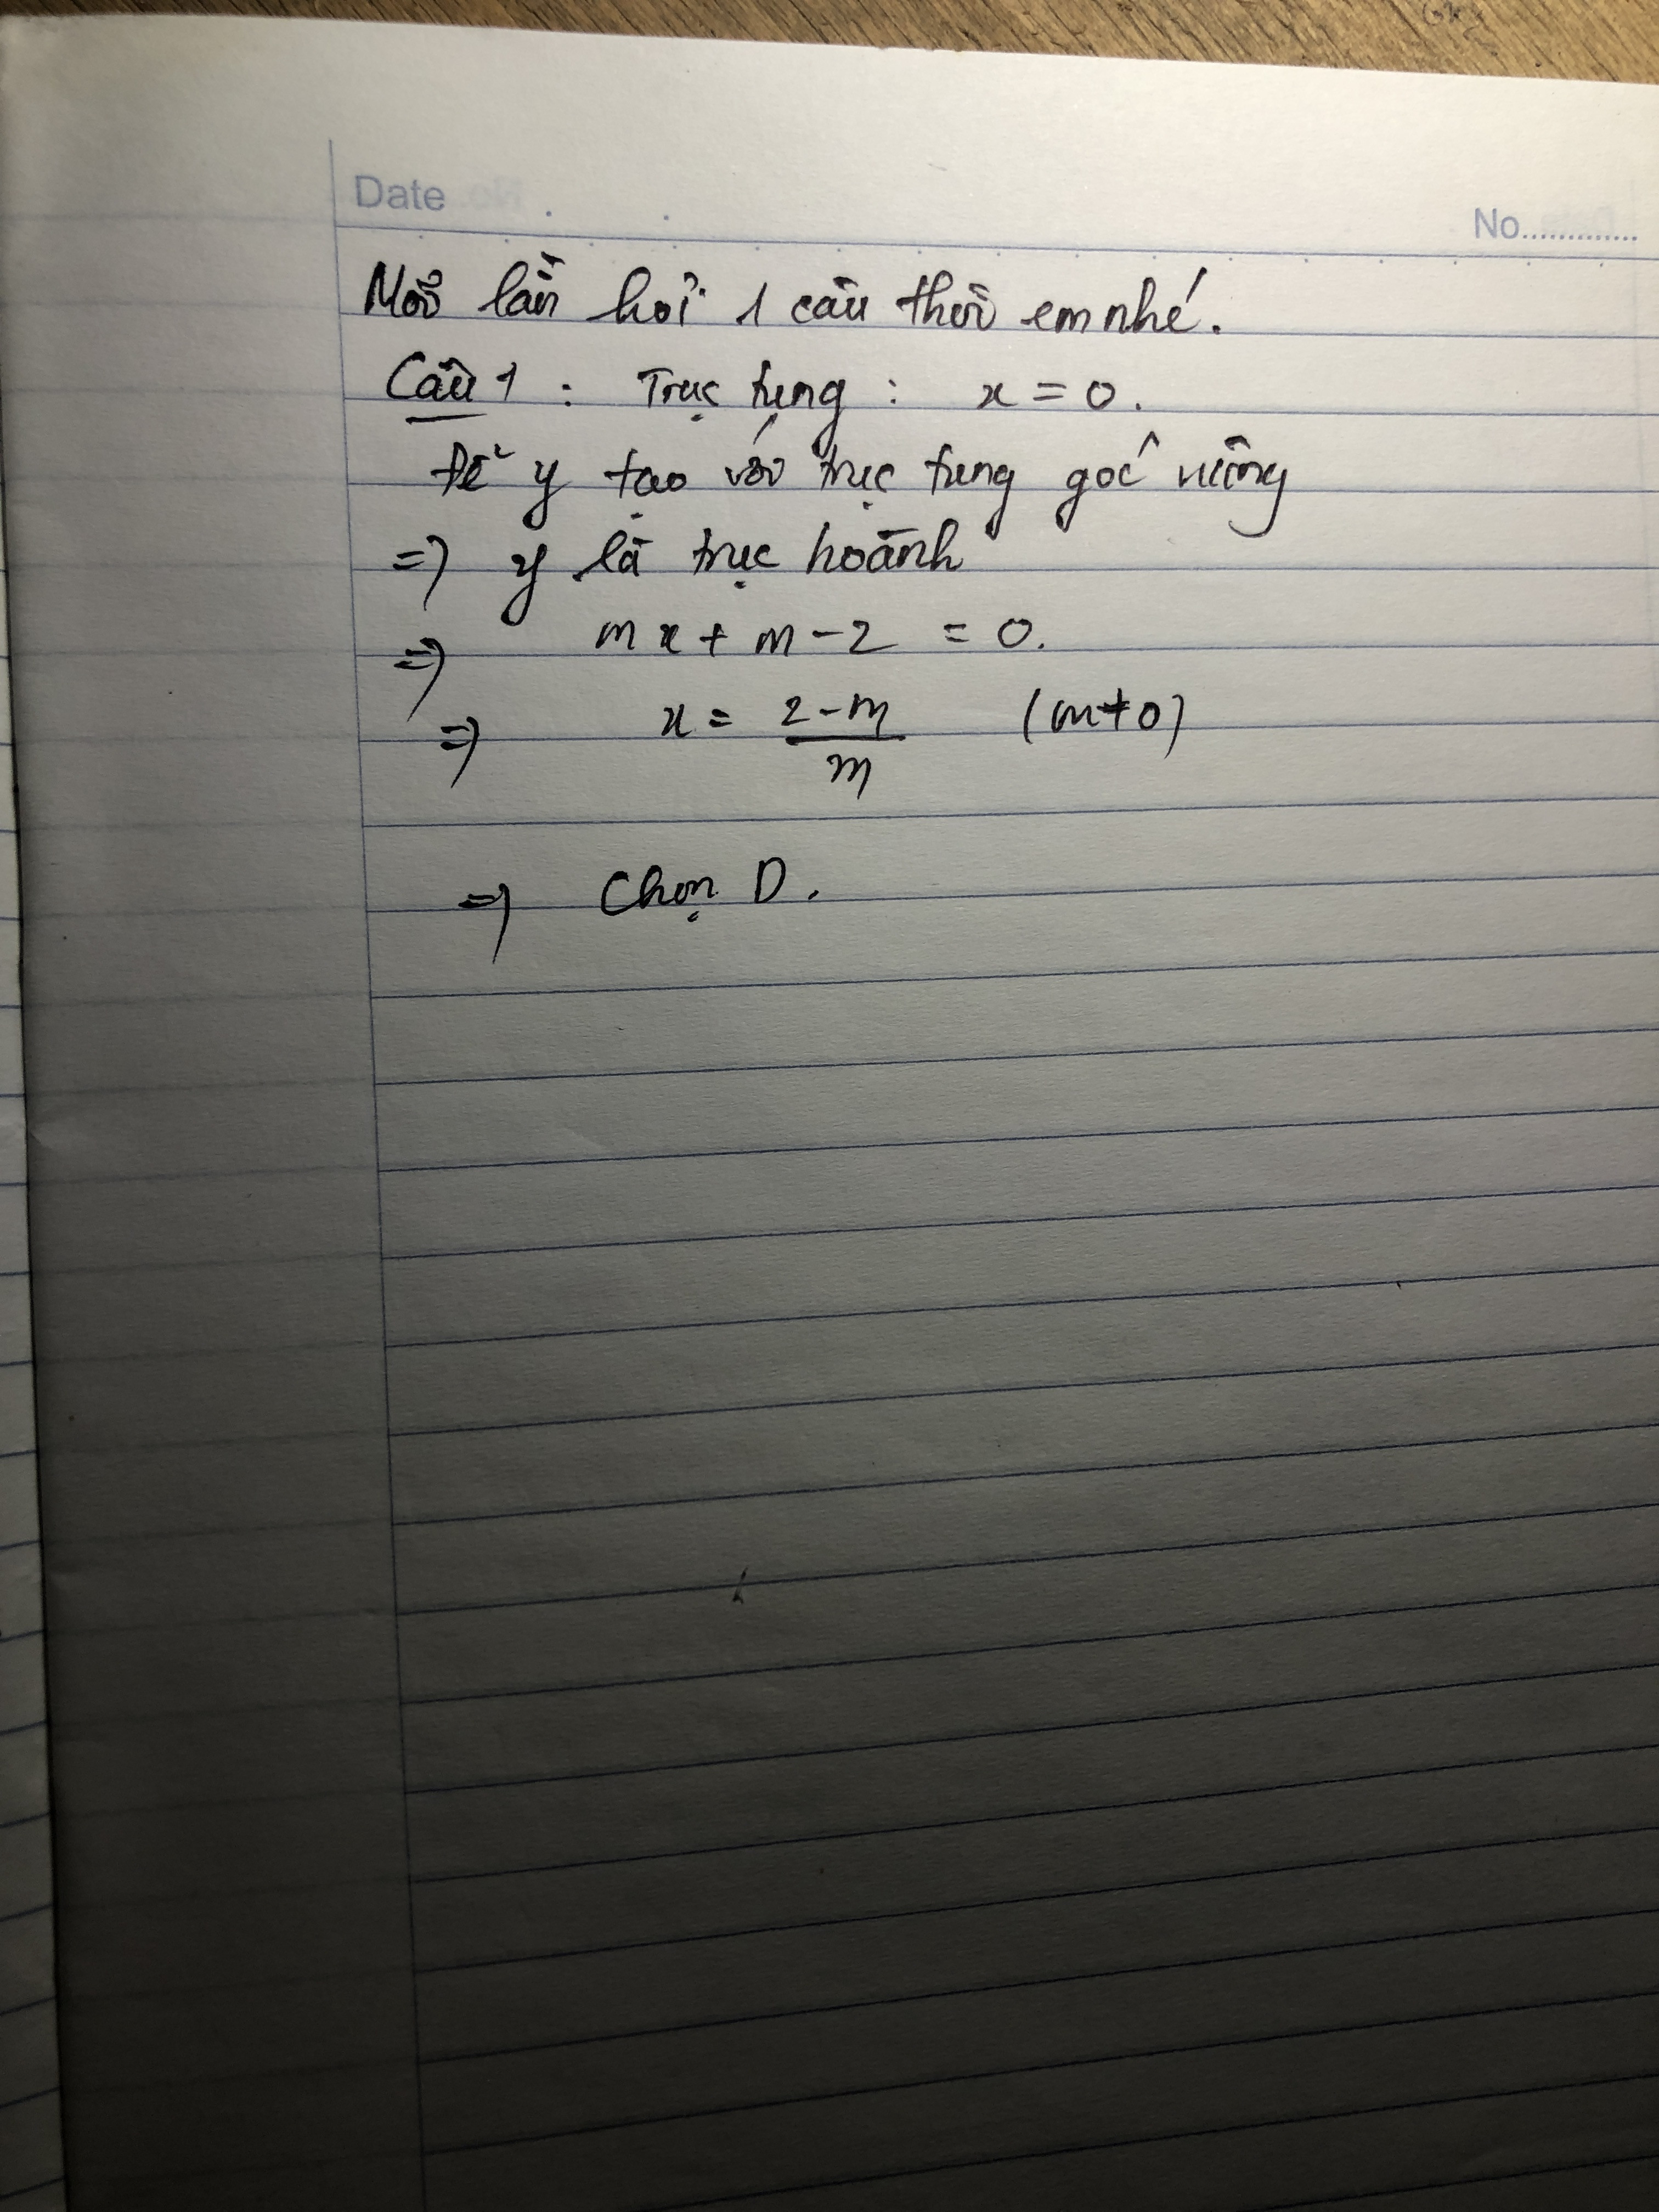 Date
No.............
Mỗi lần hỏi 1 câu thôi em nhé.
Câu 1 : Trục tung : x = 0.
Để y tạo với trục tung góc vuông
=> y là trục hoành
=> mx + m - 2 = 0.
=> x = \frac{2-m}{m} (m≠0)
=> Chọn D.